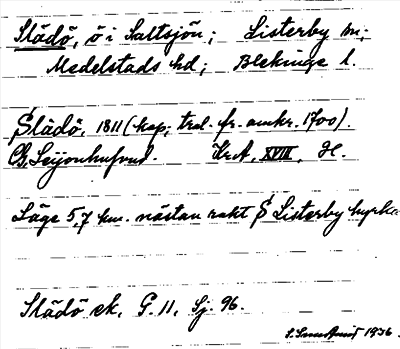 Slädö, ö i Saltsjön; Listerby sn;
Medelstads hd; Blekinge l.
Slädö, 1811 (kop; trol. fr. omkr. 1700).
Leijonhufvud. KrA, XVIII, H.
Läge 5,7 km. nästan rakt S Listerby kyrka
Slädö ek. G. 11, Sj. 96.
1936.